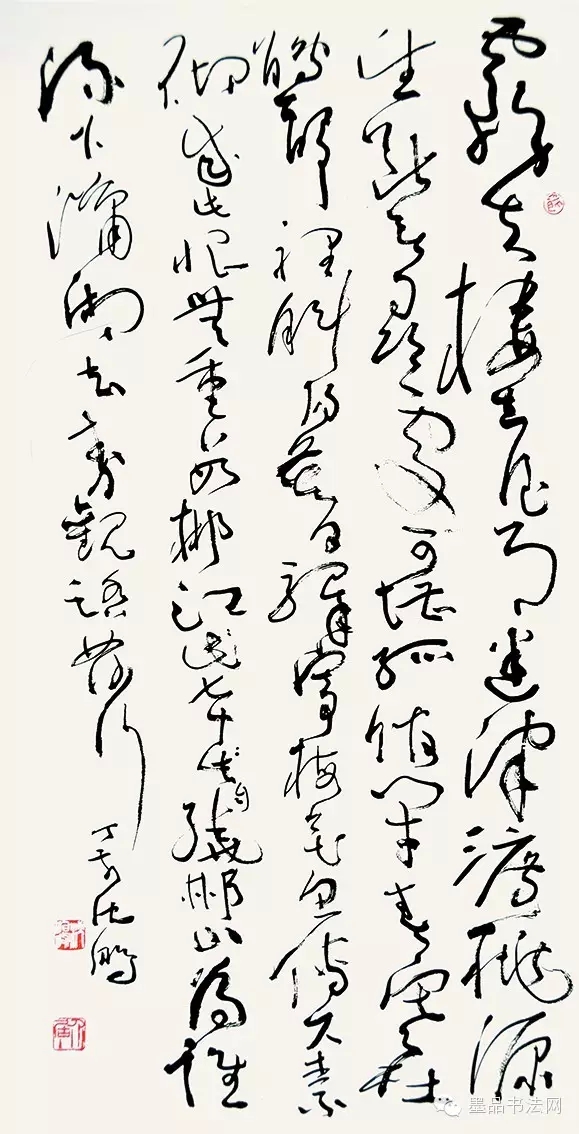 霧失樓臺月迷津渡桃源
望斷無尋處可堪孤館閉春寒杜
鵑聲裡斜陽暮驛寄梅花魚傳尺素
砌成此恨無重數郴江幸自繞郴山為誰
流下瀟湘去秦觀踏莎行
丁亥沈鵬
墨品书法网